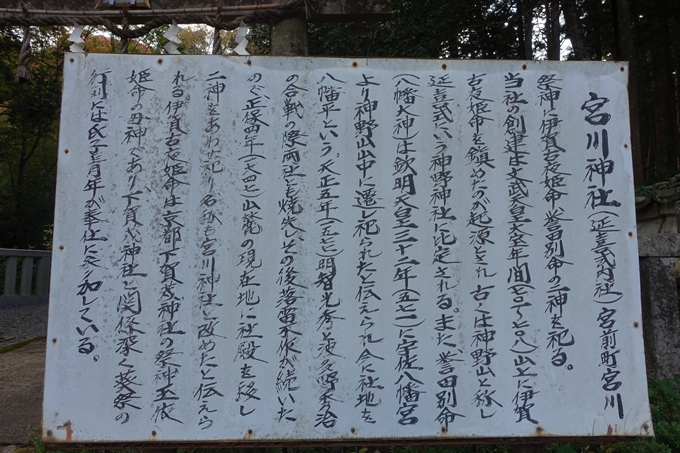 宮川神社（延喜式内社）宮前町宮川
祭神に伊賀古夜姫命、誉田別命の二神を祀る。
当社の創建は文武天皇大宝年間（七〇一〜七〇八）山上に伊賀
古夜姫命を鎮めたのが起源とされ、古くは神野山と称し
延喜式にいう神野神社に比定される。また、誉田別命
（八幡大神）は欽明天皇三十二年（五七一）に宇佐八幡宮
より神野山中に遷し祀られたと伝えられ、今に社地を
八幡平という。天正五年（一五七七）明智光秀と波多野秀治
の合戦の際両社とも焼失、その後落雷不作が続いた
ので正保四年（一六四七）山麓の現在地に社殿を移し
二神をあわせ祀り名称も宮川神社と改めたと伝えら
れる。伊賀古夜姫命は京都下賀茂神社の祭神玉依
姫命の母神であり、下賀茂神社と関係深く葵祭の
行列には氏子青年が奉仕に参加している。